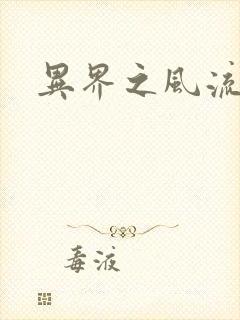 異界之風流
毒液